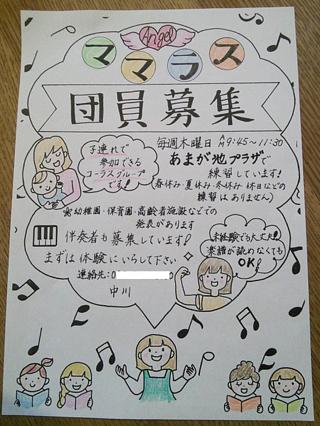 Angel
ママコラス
団員募集
子連れで
参加できる
コーラスグループ
です!
毎週木曜日 AM9:45〜11:30
あまが池プラザで
練習しています!
(春休み・夏休み・冬休み・休日などの
練習はありません)
幼稚園・保育園・高齢者施設などでの
発表があります
伴奏者も募集しています!
まずは体験にいらして下さい
連絡先:0
中川
未経験でも大丈夫!
楽譜が読めなくても
OK!